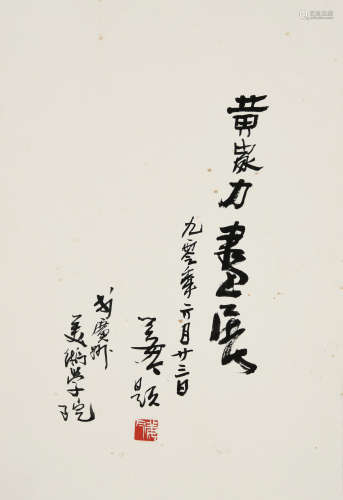 黄家力畫展
九零年六月廿三日
题
廣州
美術學院